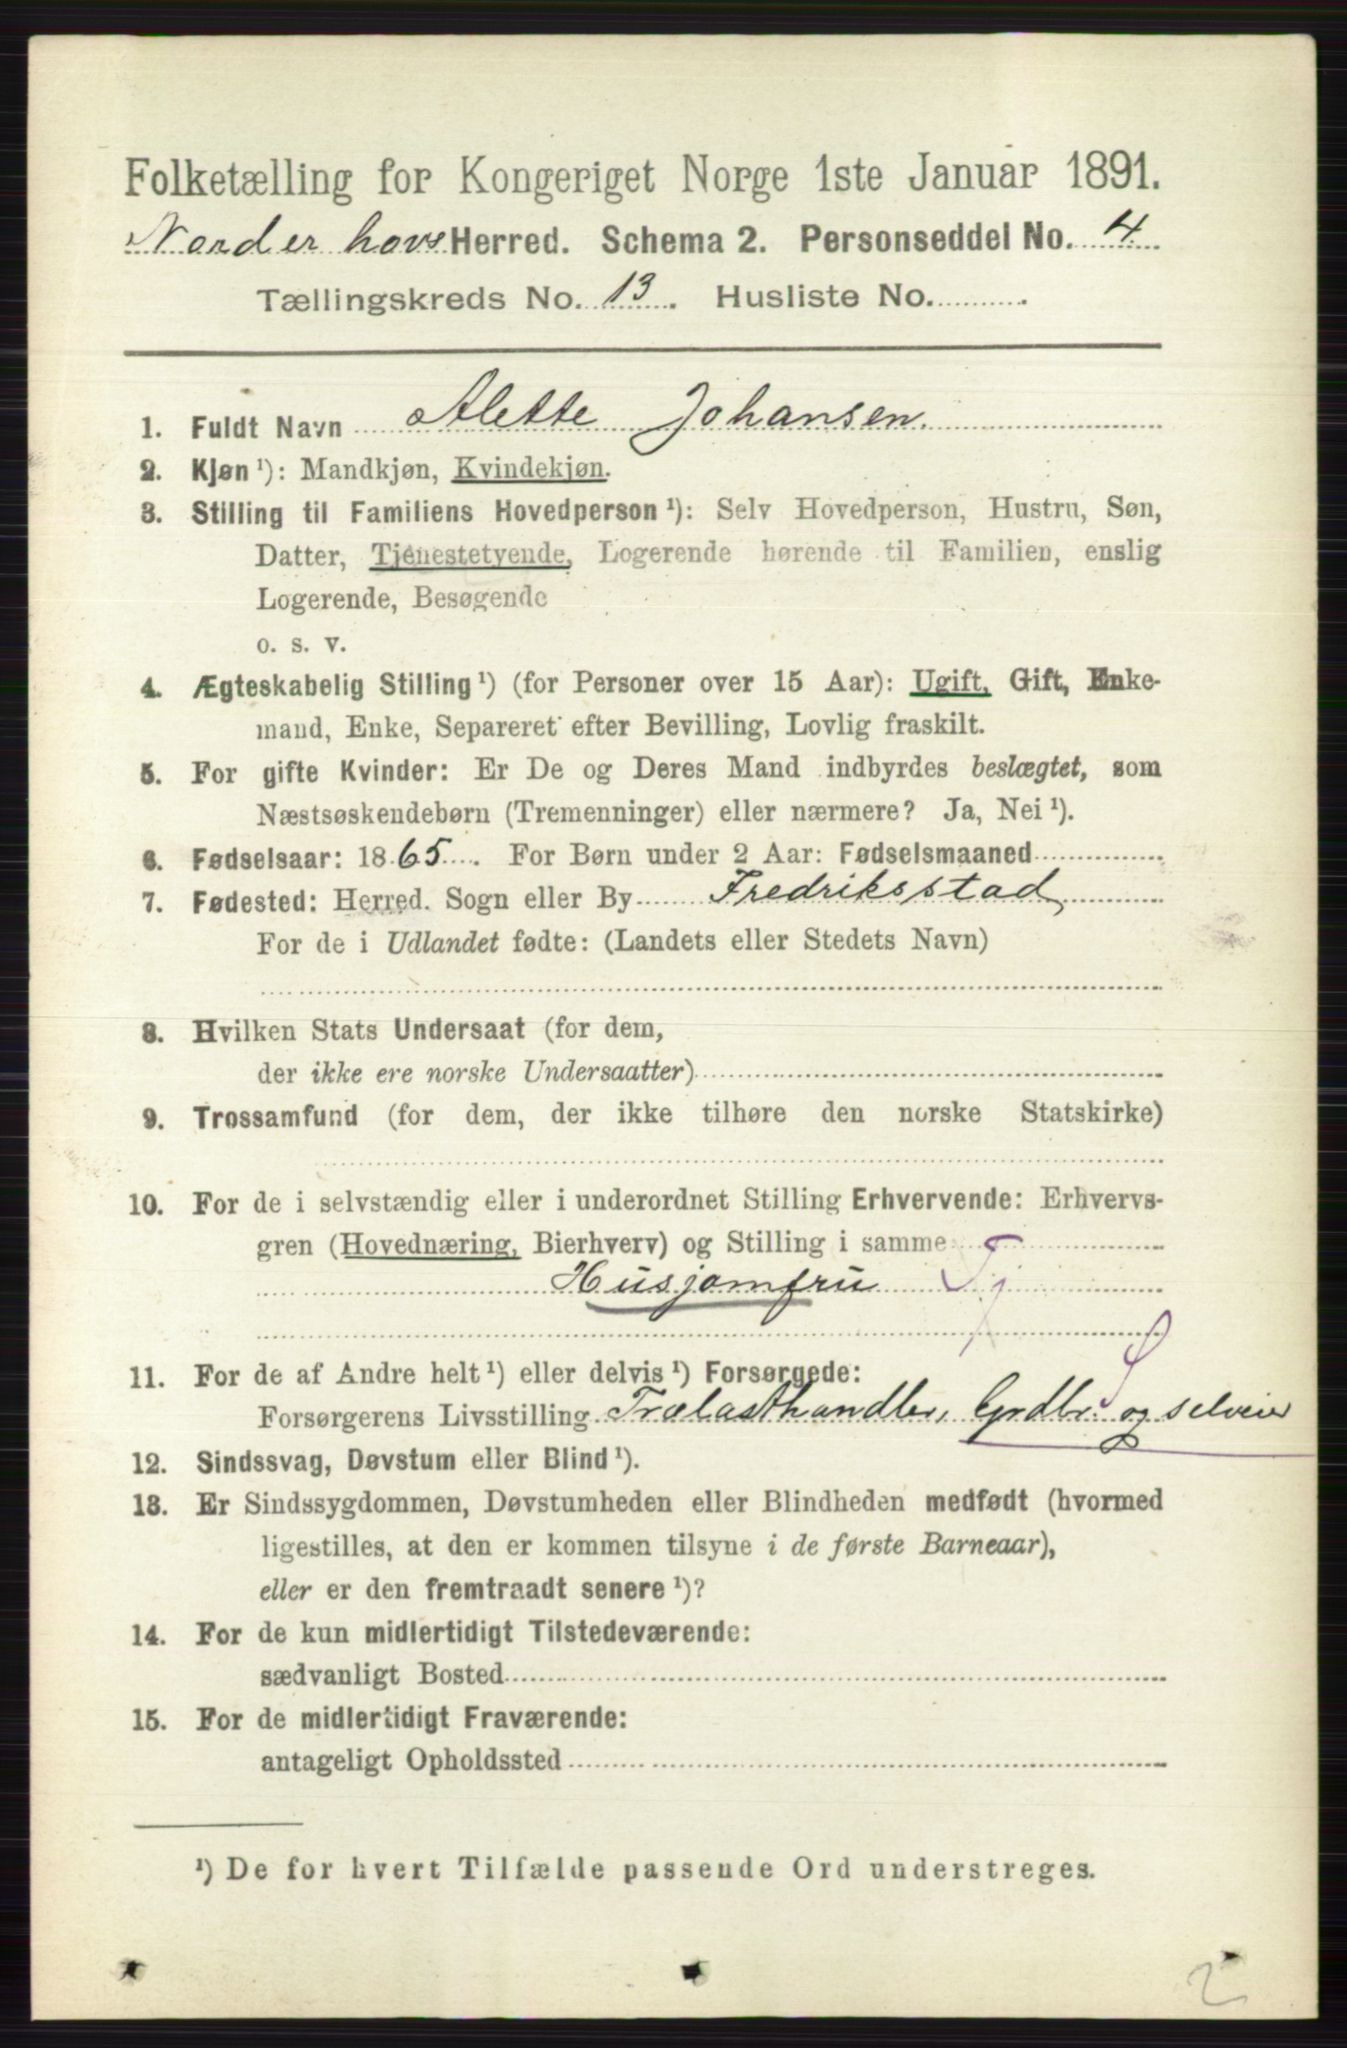 Folketælling for Kongeriget Norge 1ste Januar 1891.
Norderhovs Herred. Schema 2. Personseddel No. 4
Tællingskreds No. 13. Husliste No.
1. Fuldt Navn Alette Johansen.
2. Kjøn ¹): Mandkjøn, Kvindekjøn.
3. Stilling til Familiens Hovedperson ¹): Selv Hovedperson, Hustru, Søn,
Datter, Tjenestetyende, Logerende hørende til Familien, enslig
Logerende, Besøgende
o. s. v.
4. Ægteskabelig Stilling ¹) (for Personer over 15 Aar): Ugift, Gift, Enke-
mand, Enke, Separeret efter Bevilling, Lovlig fraskilt.
5. For gifte Kvinder: Er De og Deres Mand indbyrdes beslægtet, som
Næstsøskendebørn (Tremenninger) eller nærmere? Ja, Nei ¹).
6. Fødselsaar: 1865. For Børn under 2 Aar: Fødselsmaaned
7. Fødested: Herred. Sogn eller By Fredriksstad,
For de i Udlandet fødte: (Landets eller Stedets Navn)
8. Hvilken Stats Undersaat (for dem,
der ikke ere norske Undersaatter)
9. Trossamfund (for dem, der ikke tilhøre den norske Statskirke)
10. For de i selvstændig eller i underordnet Stilling Erhvervende: Erhvervs-
gren (Hovednæring, Bierhverv) og Stilling i samme
Husjomfru Tj
11. For de af Andre helt ¹) eller delvis ¹) Forsørgede:
Forsørgerens Livsstilling Trælasthandler, Grdbr. og selveier
12. Sindssvag, Døvstum eller Blind ¹).
13. Er Sindssygdommen, Døvstumheden eller Blindheden medfødt (hvormed
ligestilles, at den er kommen tilsyne i de første Barneaar),
eller er den fremtraadt senere ¹)?
14. For de kun midlertidigt Tilstedeværende:
sædvanligt Bosted
15. For de midlertidigt Fraværende:
antageligt Opholdssted
¹) De for hvert Tilfælde passende Ord understreges.
2